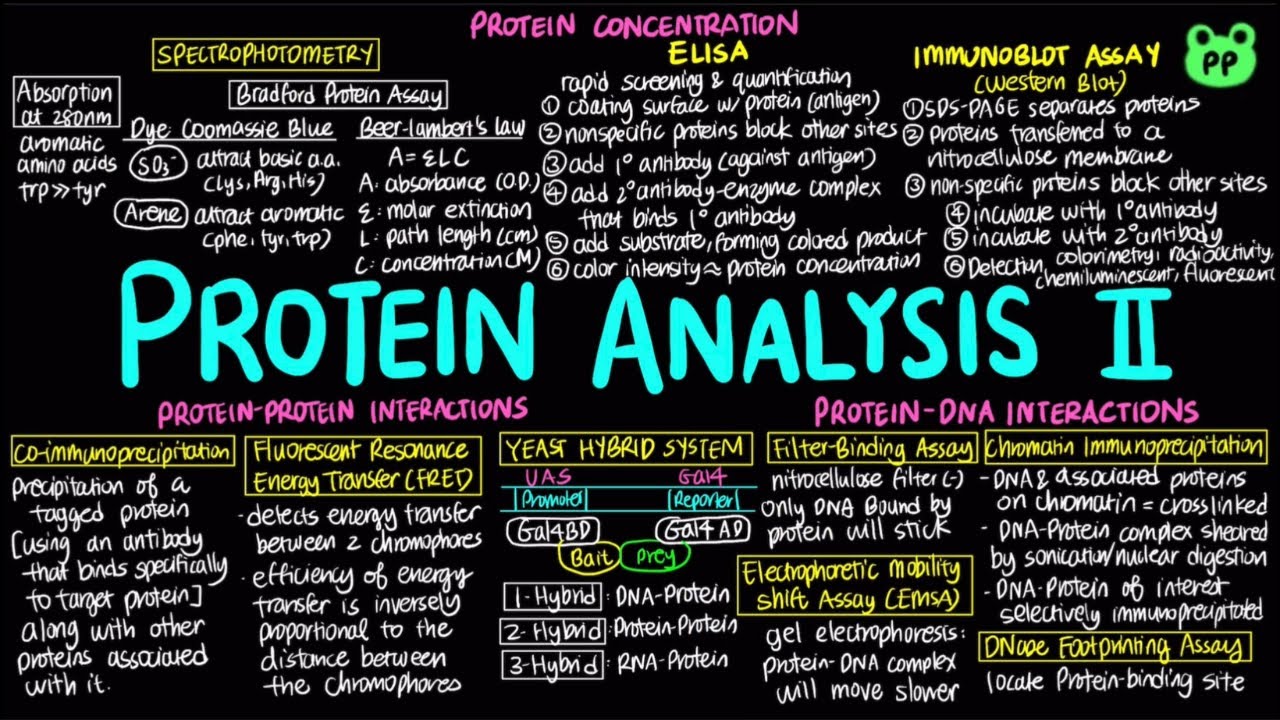 PROTEIN CONCENTRATION
PP
SPECTROPHOTOMETRY
Absorption
at 280nm
aromatic
amino acids
trp >> tyr
Bradford Protein Assay
Dye Coomassie Blue
SO₃⁻ attract basic a.a.
(Lys, Arg, His)
Arene attract aromatic
(phe, tyr, trp)
Beer-lambert's law
A = ƐLC
A: absorbance (O.D.)
Ɛ: molar extinction
L: path length (cm)
C: concentration (M)
ELISA
rapid screening & quantification
① coating surface w/ protein (antigen)
② nonspecific proteins block other sites
③ add 1° antibody (against antigen)
④ add 2° antibody-enzyme complex
that binds 1° antibody
⑤ add substrate, forming colored product
⑥ color intensity ≈ protein concentration
IMMUNOBLOT ASSAY
(Western Blot)
① SDS-PAGE separates proteins
② proteins transferred to a
nitrocellulose membrane
③ non-specific prteins block other sites
④ incubate with 1° antibody
⑤ incubate with 2° antibody
⑥ Detection colorimetry, radioactivity,
chemiluminescent, fluorescent
PROTEIN ANALYSIS II
PROTEIN-PROTEIN INTERACTIONS
Co-immunoprecipitation
precipitation of a
tagged protein
[using an antibody
that binds specifically
to target protein]
along with other
proteins associated
with it.
Fluorescent Resonance
Energy Transfer (FRET)
- detects energy transfer
between 2 chromophores
- efficiency of energy
transfer is inversely
proportional to the
distance between
the chromophores
YEAST HYBRID SYSTEM
UAS Gal4
Promoter Reporter
Gal4BD Gal4 AD
Bait Prey
1-Hybrid: DNA-Protein
2-Hybrid: Protein-Protein
3-Hybrid: RNA-Protein
PROTEIN-DNA INTERACTIONS
Filter-Binding Assay
nitrocellulose filter (-)
only DNA Bound by
protein will stick
Electrophoretic mobility
shift Assay (EMSA)
gel electrophoresis:
protein-DNA complex
will move slower
Chromatin Immunoprecipitation
- DNA & associated proteins
on chromatin = crosslinked
- DNA-Protein complex sheared
by sonication/nuclear digestion
- DNA-Protein of interest
selectively immunoprecipitated
DNase Footprinting Assay
locate Protein-binding site